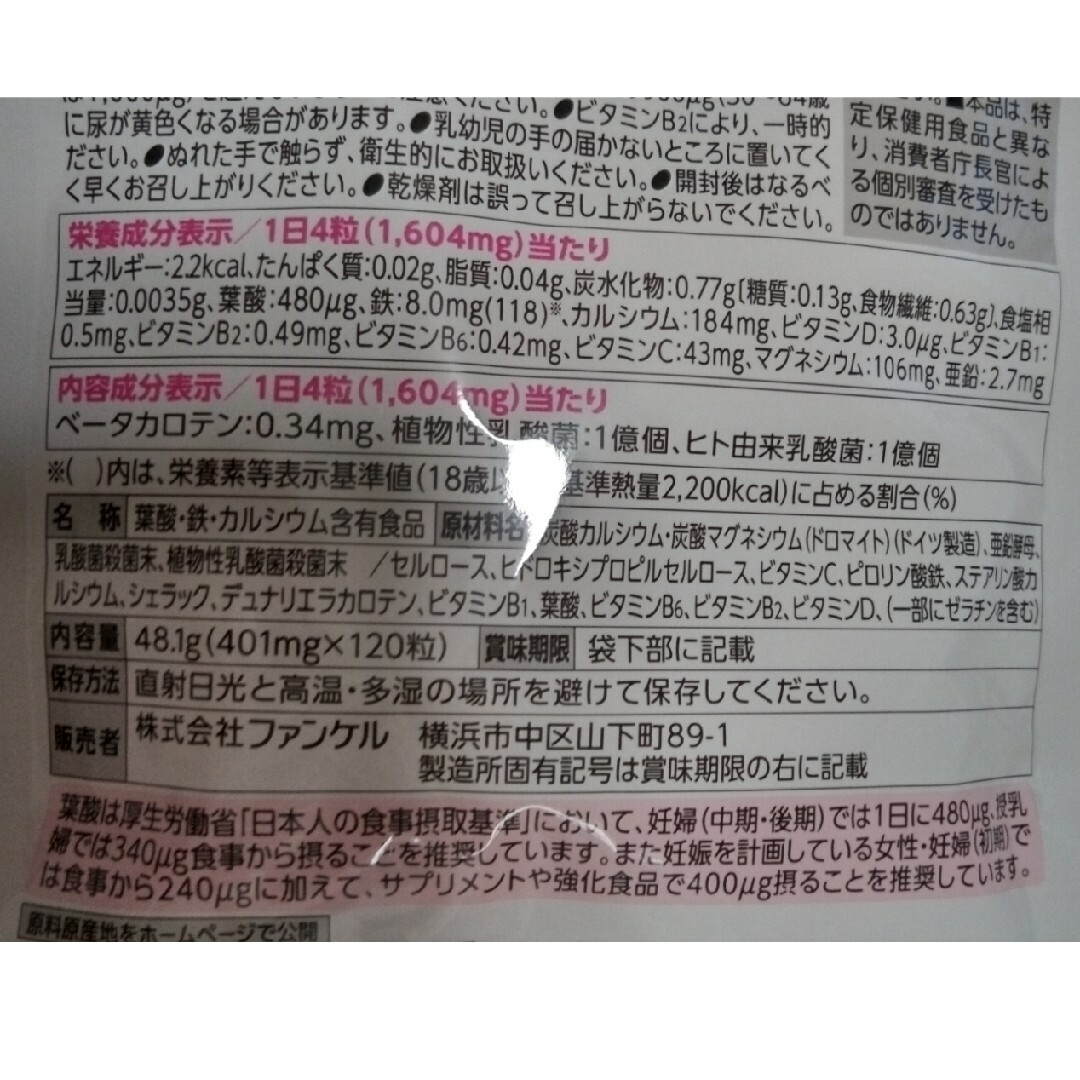 に尿が黄色くなる場合があります。●ビタミンB2により、一時的
ださい。●乳幼児の手の届かないところに置いてく
●ぬれた手で触らず、衛生的にお取扱いください。●開封後はなるべ
く早くお召し上がりください。●乾燥剤は誤って召し上がらないでください。
■本品は、特
定保健用食品と異な
り、消費者庁長官によ
る個別審査を受けたも
のではありません。
栄養成分表示/1日4粒(1,604mg)当たり
エネルギー:2.2kcal、たんぱく質:0.02g、脂質:0.04g、炭水化物:0.77g〔糖質:0.13g、食物繊維:0.63g〕、食塩相
当量:0.0035g、葉酸:480μg、鉄:8.0mg(118)※、カルシウム:184mg、ビタミンD:3.0μg、ビタミンB1:
0.5mg、ビタミンB2:0.49mg、ビタミンB6:0.42mg、ビタミンC:43mg、マグネシウム:106mg、亜鉛:2.7mg
内容成分表示/1日4粒(1,604mg)当たり
ベータカロテン:0.34mg、植物性乳酸菌:1億個、ヒト由来乳酸菌:1億個
※( )内は、栄養素等表示基準値(18歳以 基準熱量2,200kcal)に占める割合(%)
名 称 葉酸・鉄・カルシウム含有食品 原材料名 炭酸カルシウム・炭酸マグネシウム(ドロマイト)(ドイツ製造)、亜鉛酵母、
乳酸菌殺菌末、植物性乳酸菌殺菌末 /セルロース、ヒドロキシプロピルセルロース、ビタミンC、ピロリン酸鉄、ステアリン酸カ
ルシウム、シェラック、デュナリエラカロテン、ビタミンB1、葉酸、ビタミンB6、ビタミンB2、ビタミンD、(一部にゼラチンを含む)
内容量 48.1g(401mg×120粒) 賞味期限 袋下部に記載
保存方法 直射日光と高温・多湿の場所を避けて保存してください。
販売者 株式会社ファンケル 横浜市中区山下町89-1
製造所固有記号は賞味期限の右に記載
葉酸は厚生労働省「日本人の食事摂取基準」において、妊婦(中期・後期)では1日に480μg、授乳
婦では340μg食事から摂ることを推奨しています。また妊娠を計画している女性・妊婦(初期)で
は食事から240μgに加えて、サプリメントや強化食品で400μg摂ることを推奨しています。
原料原産地をホームページで公開